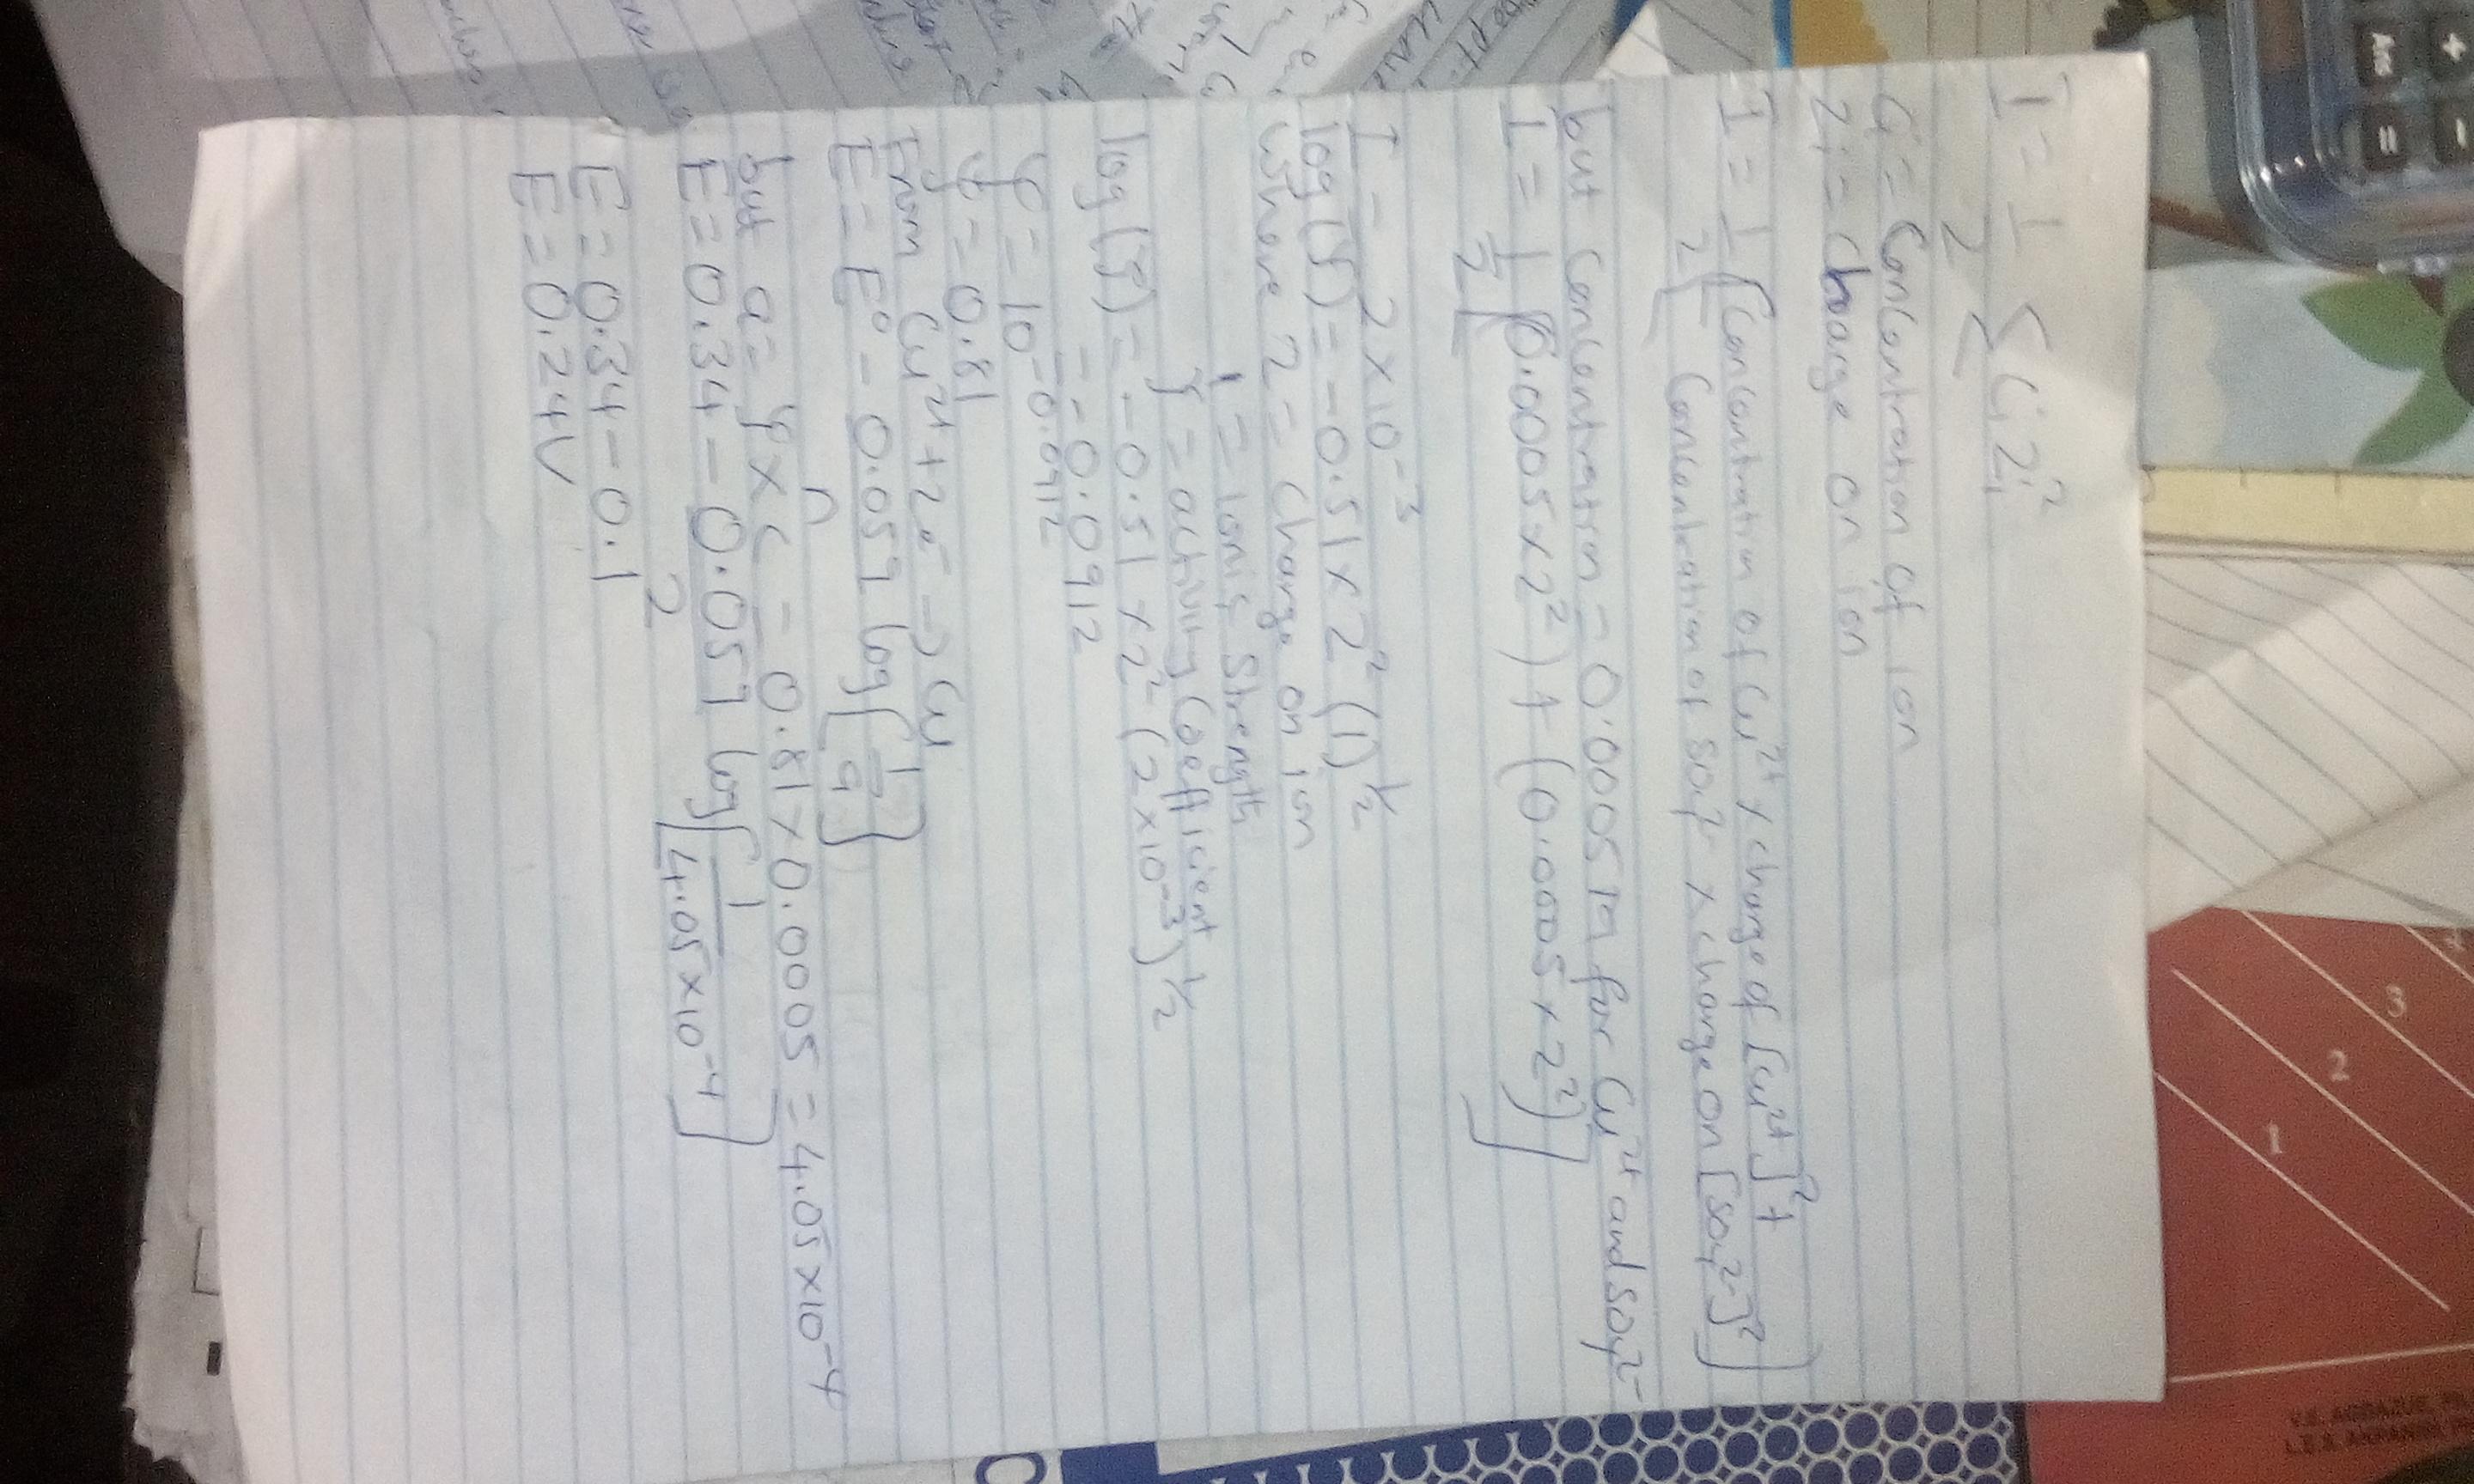 I = 1/2 ∑ Ci Zi²
Ci = Concentration of ion
Zi = Charge on ion
I = 1/2 [Concentration of Cu²⁺ x charge of [Cu²⁺]² +
Concentration of SO₄²⁻ x charge on [SO₄²⁻]²]
but Concentration = 0.0005M for Cu²⁺ and SO₄²⁻
I = 1/2 [(0.0005 x 2²) + (0.0005 x 2²)]
I = 2 x 10⁻³
log(γ) = -0.51 x 2² (I)^½
Where Z = Charge on ion
I = Ionic Strength
γ = activity Coefficient
log(γ) = -0.51 x 2² (2 x 10⁻³)^½
= -0.0912
γ = 10^-0.0912
γ = 0.81
From Cu²⁺ + 2e⁻ → Cu
E = E° - 0.059/n log [1/a]
but a = γ x c = 0.81 x 0.0005 = 4.05 x 10⁻⁴
E = 0.34 - 0.059/2 log [1/4.05 x 10⁻⁴]
E = 0.34 - 0.1
E = 0.24V
Ans
+
=
-
1
2
3